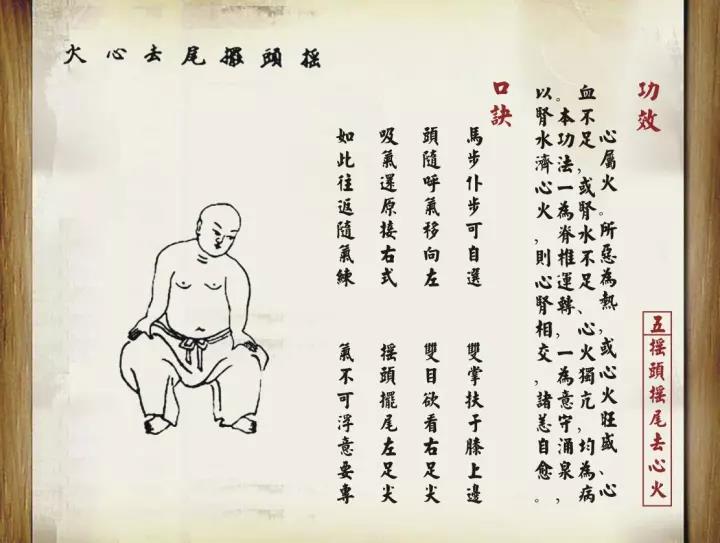 摇頭擺尾去心火
功效
五摇頭摇尾去心火
心屬火。所惡為熱，或心火旺盛、心
血不足，或腎水不足、心火獨亢，均為病
。本功法一為脊椎運轉、一為意守涌泉，
以腎水濟心火，則心腎相交，諸恙自愈。
口訣
馬步仆步可自選 雙掌扶于膝上邊
頭隨呼氣移向左 雙目欲看右足尖
吸氣還原接右式 摇頭擺尾左足尖
如此往返隨氣練 氣不可浮意要專